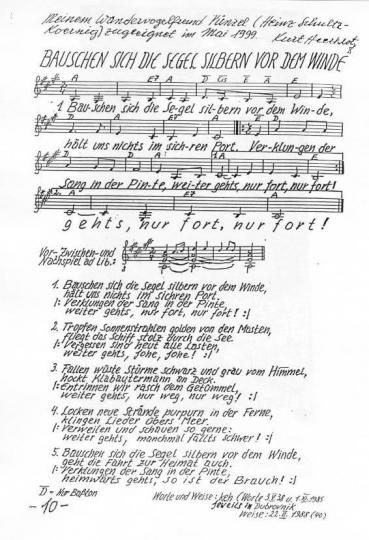 Meinem Wandervogelfreund Pünzel (Heinz Schultz-
Koernig) zugeeignet im Mai 1999. Kurt Heerklotz
BAUSCHEN SICH DIE SEGEL SILBERN VOR DEM WINDE
A E7 A D E A
1. Bau-schen sich die Se-gel sil-bern vor dem Win-de,
D A E7 A D
hält uns nichts im sich-ren Port. Ver-klun-gen der
A D 1.A E
Sang in der Pin-te, wei-ter gehts, nur fort, nur fort!
2. A E7 A
gehts, nur fort, nur fort!
Vor-, Zwischen- und
Nachspiel ad lib.:
1. Bauschen sich die Segel silbern vor dem Winde,
hält uns nichts im sichren Port.
|: Verklungen der Sang in der Pinte,
weiter gehts, nur fort, nur fort! :|
2. Tropfen Sonnenstrahlen golden von den Masten,
fliegt das Schiff stolz durch die See.
|: Vergessen sind heut alle Lasten,
weiter gehts, johe, johe! :|
3. Fallen wüste Stürme schwarz und grau vom Himmel,
hockt Klabautermann an Deck.
|: Entrinnen wir rasch dem Getümmel,
weiter gehts, nur weg, nur weg! :|
4. Locken neue Strände purpurn in der Ferne,
klingen Lieder übers Meer.
|: Verweilen und schauen so gerne:
weiter gehts, manchmal fällts schwer! :|
5. Bauschen sich die Segel silbern vor dem Winde,
geht die Fahrt zur Heimat auch.
|: Verklungen der Sang in der Pinte,
heimwärts gehts, so ist der Brauch! :|
D = Nur Baßton
Worte und Weise: keh (Worte
jeweils in Dubrovnik
Weise: 22. 1988 (40)
-10-